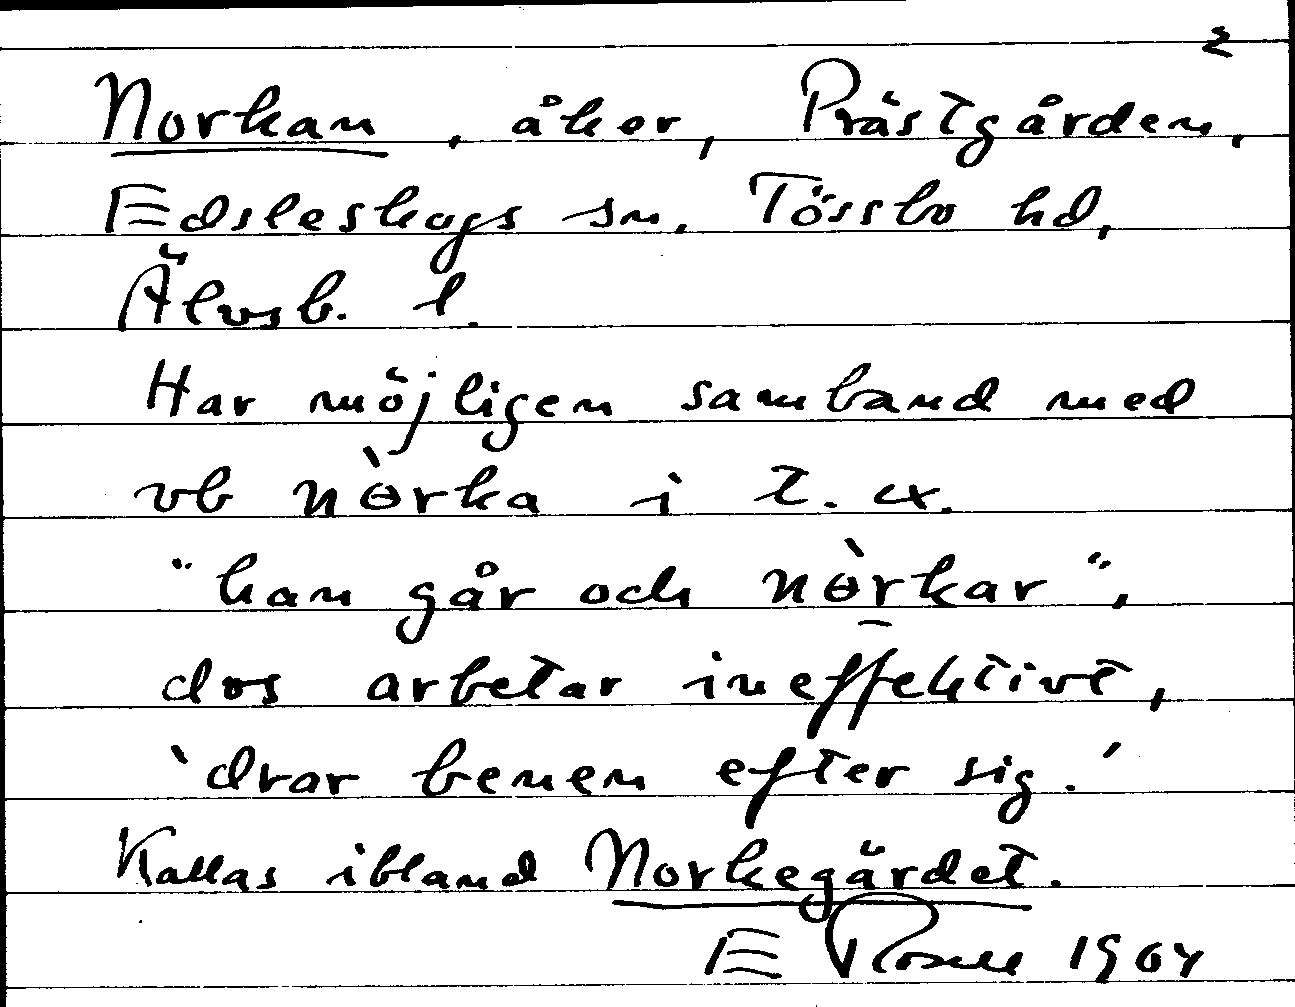 2
Norkan, åker, Prästgården,
Edsleskogs sn, Tössbo hd,
Älvsb. l.
Har möjligen samband med
vb nòrka i t. ex.
"han går och nòrkar",
dvs arbetar ineffektivt,
'drar benen efter sig.'
Kallas ibland Norkegärdet.
E 1964